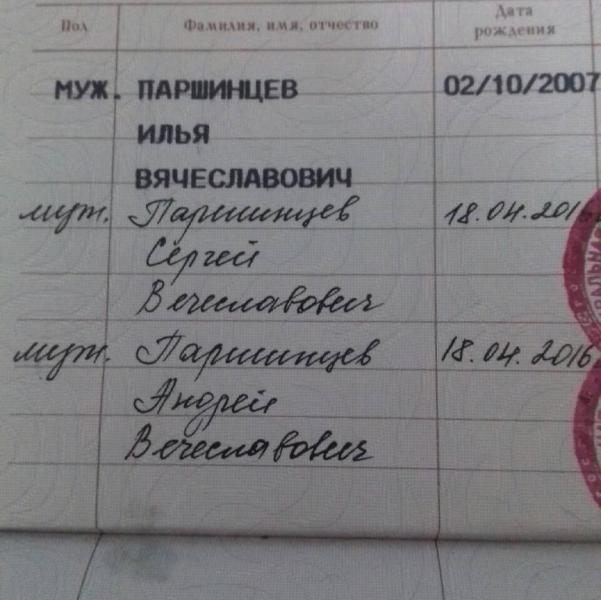 Пол Фамилия, имя, отчество Дата рождения
МУЖ. ПАРШИНЦЕВ 02/10/2007
ИЛЬЯ
ВЯЧЕСЛАВОВИЧ
муж. Паршинцев 18.04.2016
Сергей
Вечеславович
муж. Паршинцев 18.04.2016
Андрей
Вечеславович